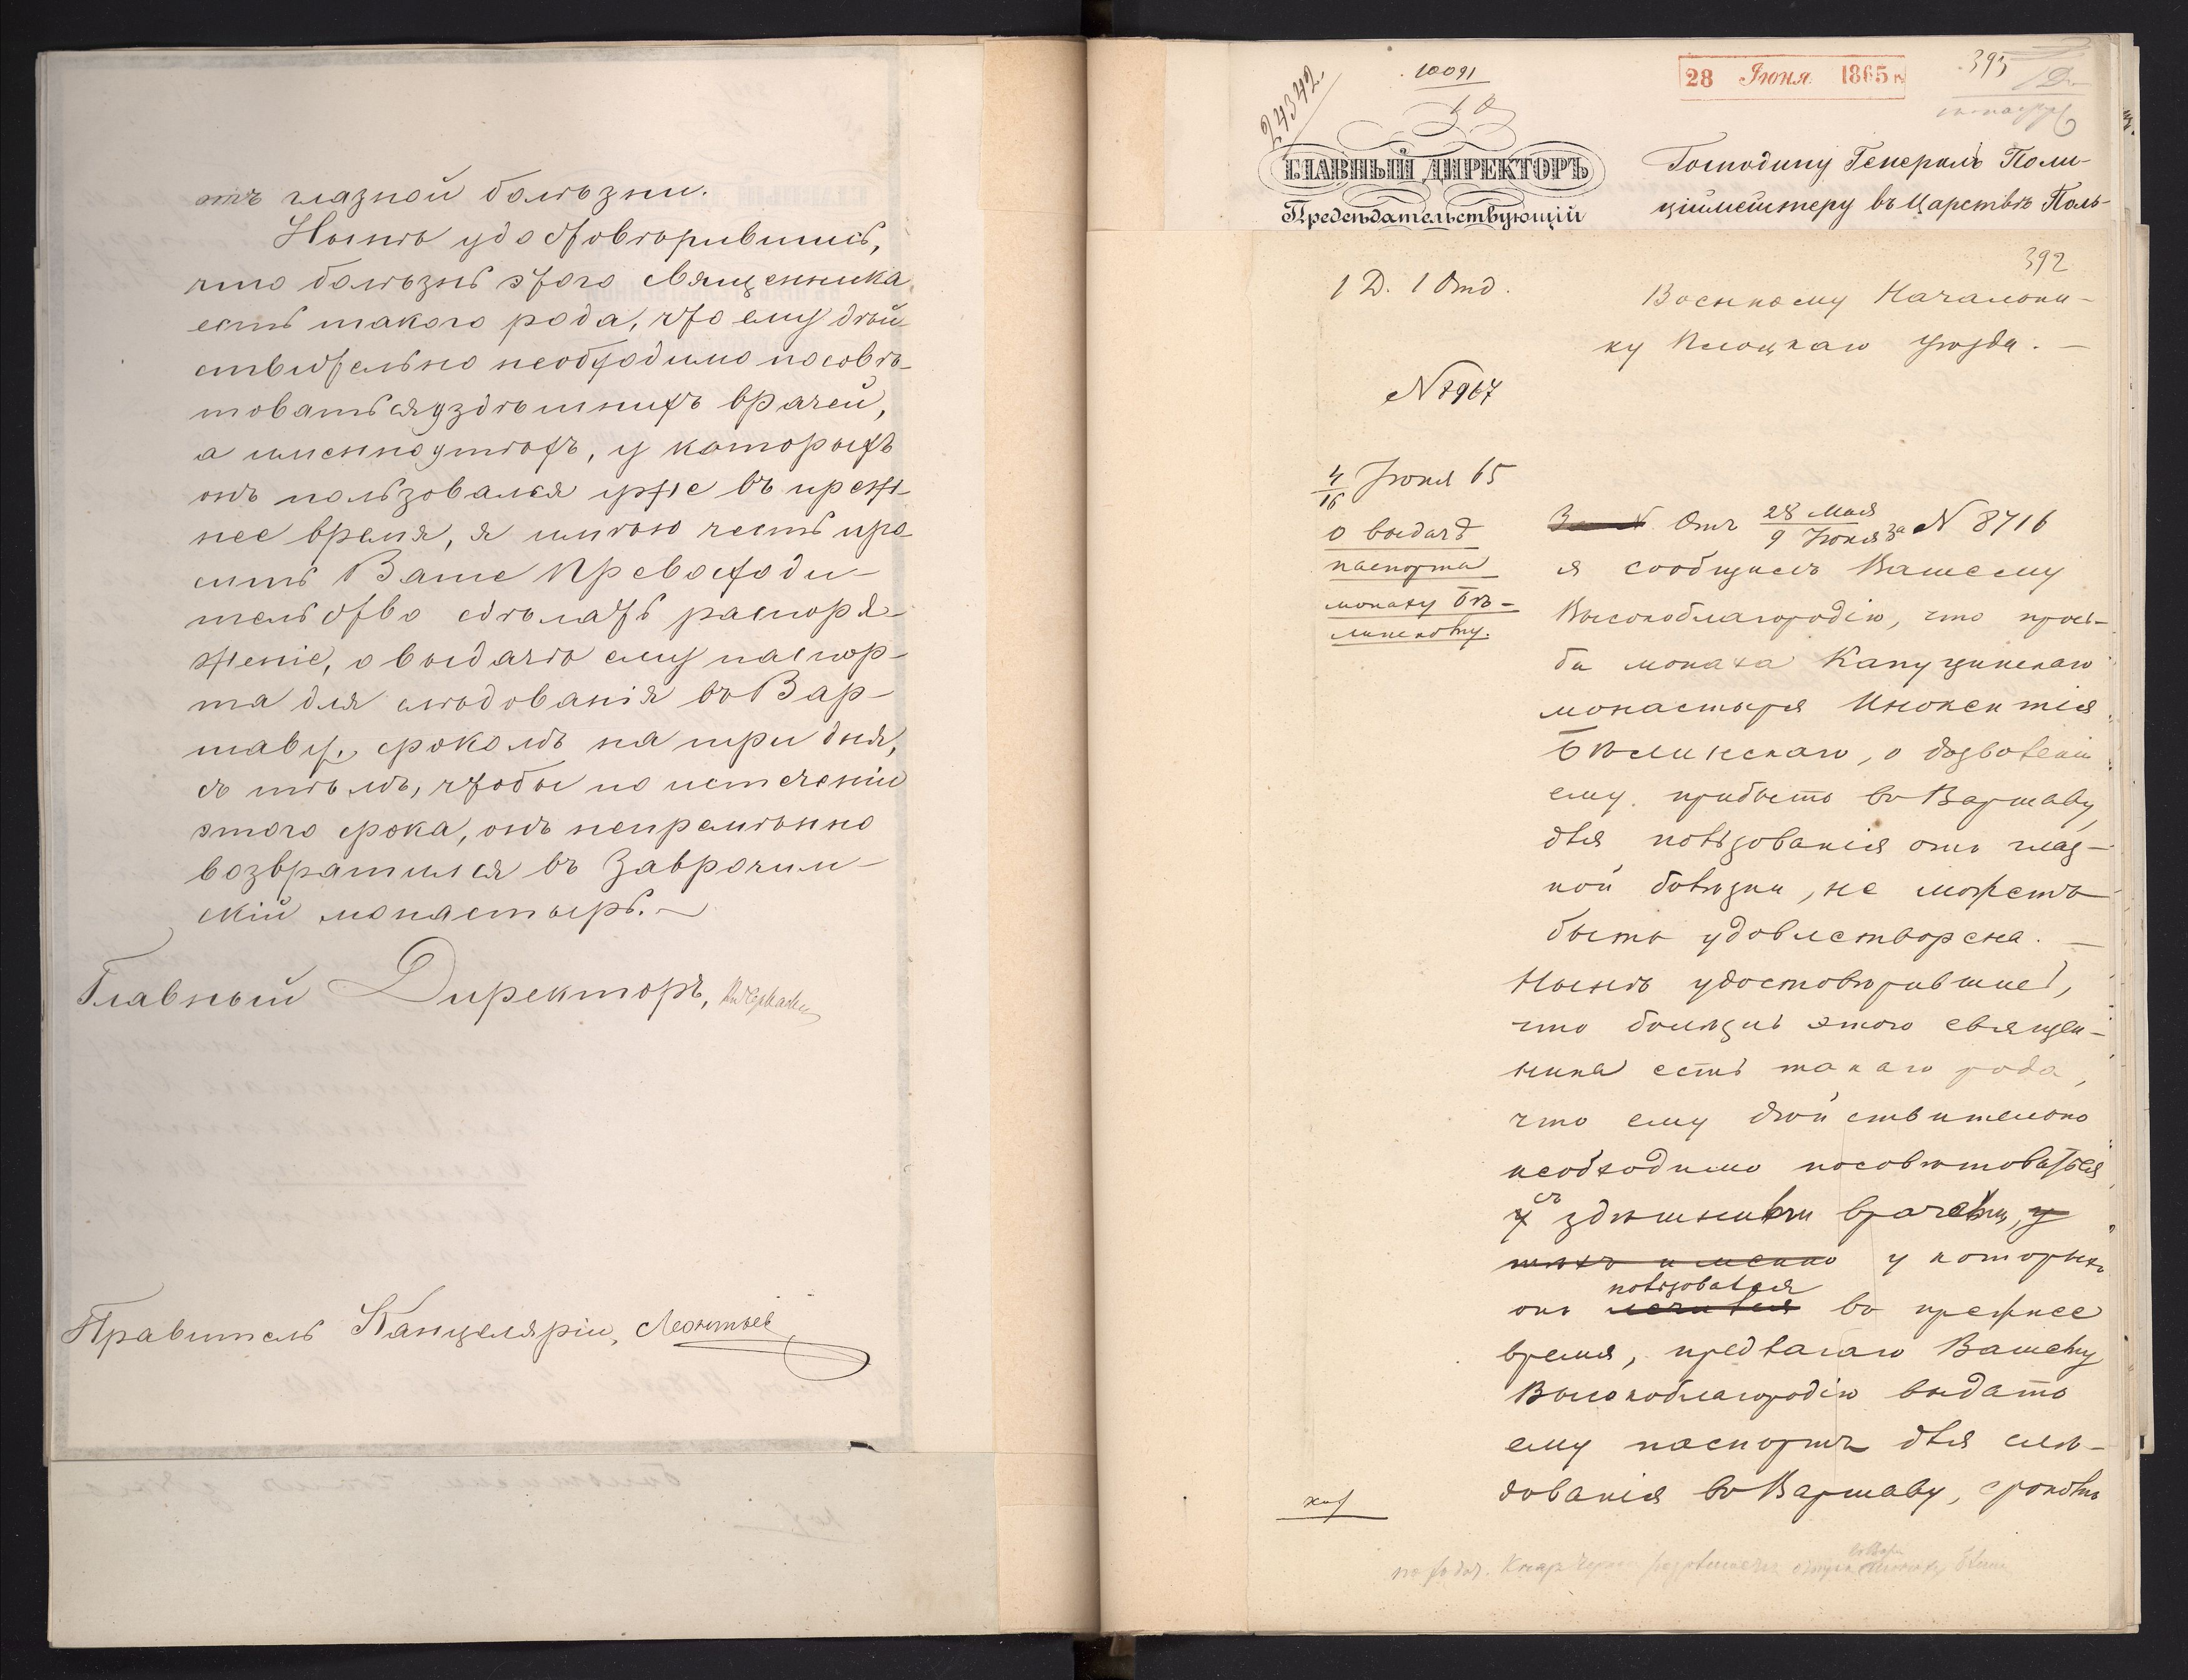 отъ глазной болѣзни.
Нынѣ удостовѣрившись,
что болѣзнь этого священника
есть такого рода, что ему дѣй-
ствительно необходимо посовѣ-
товаться у здѣшнихъ врачей,
а именно у тѣхъ, у которыхъ
онъ пользовался уже въ преж-
нее время, я имѣю честь про-
сить Ваше Превосходи-
тельство сдѣлать распоря-
женіе, о выдачѣ ему паспор-
та для слѣдованія въ Вар-
шаву, срокомъ на три дня,
съ тѣмъ, чтобы по истеченіи
этого срока, онъ непремѣнно
возвратился въ Заврочим-
скій монастырь.
Главный Директоръ,
Правитель Канцеляріи, Леонтьевъ
24342
10091
28 Іюня 1865 г.
395
ГЛАВНЫЙ ДИРЕКТОРЪ
Предсѣдательствующій
Господину Генералъ Поли-
цiймейстеру въ Царствѣ Поль-
392
1 Д. 1 Отд.
Военному Начальни-
ку Плоцкаго уѣзда. —
N 7967
4/16 Іюня 65
О выдачѣ
паспорта
монаху Бѣ-
линскому.
Отъ 28 Мая / 9 Іюня за N 8716
я сообщилъ Вашему
Высокоблагородію, что прось-
ба монаха Капуцинскаго
монастыря Инокентія
Бѣлинскаго, о дозволеніи
ему прибыть въ Варшаву,
для пользованія отъ глаз-
ной болѣзни, не можетъ
быть удовлетворена. —
Нынѣ удостовѣрившись,
что болѣзнь этого священ-
ника есть такаго рода,
что ему дѣйствительно
необходимо посовѣтоваться
у съ здѣшними врачами, у
тѣхъ именно у которыхъ
пользовался
онъ лечился въ прежнее
время, предлагаю Вашему
Высокоблагородію выдать
ему паспортъ для слѣ-
дованія въ Варшаву, срокомъ